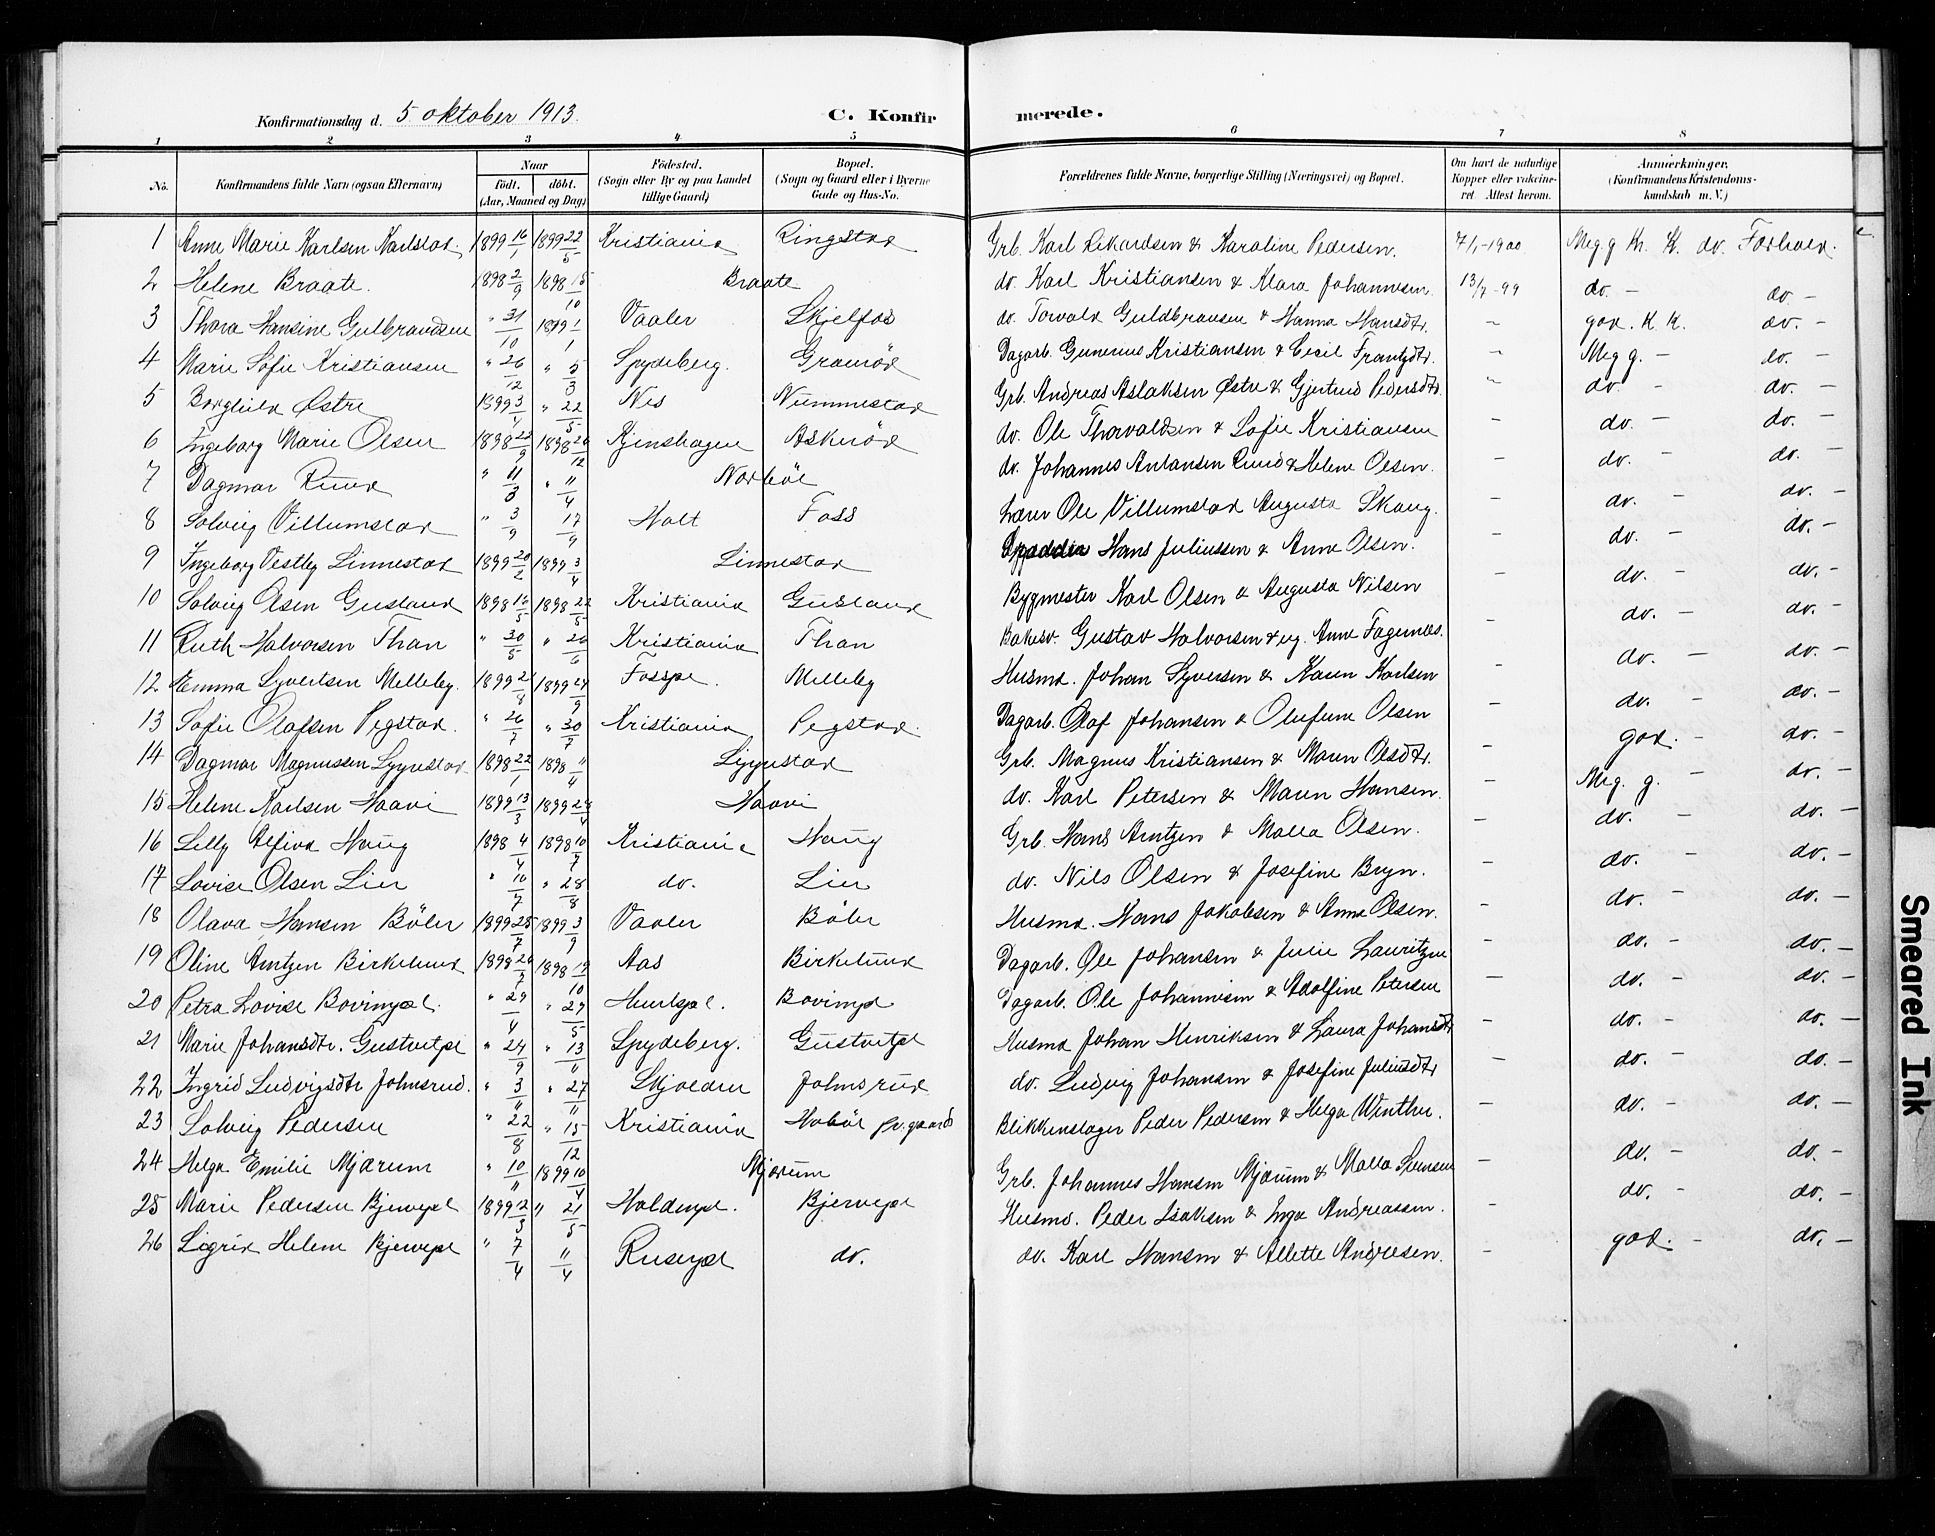 Konfirmationsdag d. 5 oktober 1913. C. Konfirmerede.
1 2 3 4 5 6 7 8
No. Konfirmandens fulde Navn (ogsaa Efternavn) Naar født. døbt. (Aar, Maaned og Dag) Fødested. (Sogn eller By og paa Landet tillige Gaard) Bopæl. (Sogn og Gaard eller i Byerne Gade og Hus-No. Forældrenes fulde Navne, borgerlige Stilling (Næringsvei) og Bopæl. Om havt de naturlige Kopper eller vaccineret Attest herom. Anmærkninger. (Konfirmandens Kristendomskundskab m. V.)
1 Anne Marie Karlsen Karlstad. 1899 16/1 1899 22/5 Kristiania Ringstad Grb. Karl Rikardsen & Karoline Pedersen. 7/1-1900 Meg. g Kr. K. do. Forhold.
2 Helene Braate. 1898 2/9 1898 15/10 Braate do. Karl Kristiansen & Klara Johannesen. 13/7-99 do. - do. -
3 Thora Hansine Gulbrandsen " 31/10 1899 1/1 Vaaler Skjelfos do. Torvald Guldbransen & Hanna Hansdtr. - god. K K. do. -
4 Marie Sofie Kristiansen " 26/12 " 5/3 Spydeberg. Gramød Dagarb. Gunerius Kristiansen & Cecil Frantzdtr. - Meg g. - do. -
5 Borghild Østre 1899 3/4 " 22/5 Nes Nummestad Grb. Andreas Aslaksen Østre & Gjertrud Pedersdtr. - do. - do. -
6 Ingeborg Marie Olsen 1898 22/9 1898 26/12 Askerød do. Ole Thorvaldsen & Sofie Kristiansen - do. - do. -
7 Dagmar Ruud " 11/3 " 11/4 Norbøl do. Johannes Antansen Ruud & Helene Olsen. - do. - do. -
8 Solveig Villumstad " 3/9 17/4 Holt Foss Lærer Ole Villumstad Augusta Skaug. - do. - do. -
9 Ingeborg Vestby Linnestad 1899 20/2 1899 3/4 Linnestad Hans Juliussen & Anne Olsen. - do. - do. -
10 Solvig Olsen Gusland 1898 16/5 1898 22/5 Kristiania Gusland Bygmester Karl Olsen & Augusta Nilsen - do. - do. -
11 Ruth Halvorsen Than " 30/5 " 26/6 Kristiania Than Bakesv. Gustav Halvorsen & ug. Anne Fagernæs. - do. - do. -
12 Emma Syvertsen Melleby. 1899 2/8 1899 24/9 Melleby Husmd. Johan Syversen & Karen Karlsen - do. - do. -
13 Sofie Olafsen Pegstad. " 26/7 " 30/7 Kristiania Pegstad. Dagarb. Olaf Johansen & Olufine Olsen - do. - do. -
14 Dagmar Magnussen Lyngstad. 1898 22/1 1898 11/4 Lyngstad Grb. Magnus Kristiansen & Maren Olsdtr. - god. - do. -
15 Helene Karlsen Haavi 1899 13/3 1899 24/4 Haavi do. Karl Petersen & Maren Hansen. - Meg. g. - do. -
16 Lilly Alfiva Haug 1898 4/4 1898 10/7 Kristiania Haug Grb. Hans Arntzen & Malla Olsen. - do. - do. -
17 Lovise Olsen Lier " 10/7 " 28/8 do. Lier do. Nils Olsen & Josefine Bryn. - do. - do. -
18 Olava Hansen Bøler 1899 25/7 1899 3/9 Vaaler Bøler Husmd. Hans Jakobsen & Anna Olsen. - do. - do. -
19 Oline Arntzen Birkelund 1898 26/7 1898 19/10 Aas Birkelund Dagarb. Ole Johansen & Julie Lauritzen - do. - do. -
20 Petra Lovise Bovimpl. " 29/4 " 27/5 Bovimpl Dagarb. Ole Johannesen & Adolfine Petersen - do. - do. -
21 Marie Johansdtr. " 24/9 " 13/11 Spydeberg. Husmd Johan Henriksen & Laura Johansdtr - do. - do. -
22 Ingrid Ludvigsdtr Johnsrud. " 3/11 " 27/11 Skjolden Johnsrud do. Ludvig Johansen & Josefine Juliusdtr - do. - do. -
23 Solveig Pedersen " 22/8 " 15/12 Kristiania Hobøl pr.gaard Blikkenslager Peder Pedersen & Helga Winther. - do. - do. -
24 Helga Emilie Mjærum " 10/11 1899 10/4 Mjærum Grb. Johannes Hansen Mjærum & Malla Svensen - do. - do. -
25 Marie Pedersen Bjervepl 1899 12/3 " 21/5 Bjervepl Husmd. Peder Isaksen & Inga Andreassen. - do. - do. -
26 Sigrid Helene Bjervepl " 7/4 11/4 do. do. Karl Hansen & Allette Andresen. - god. - do. -
Smeared Ink